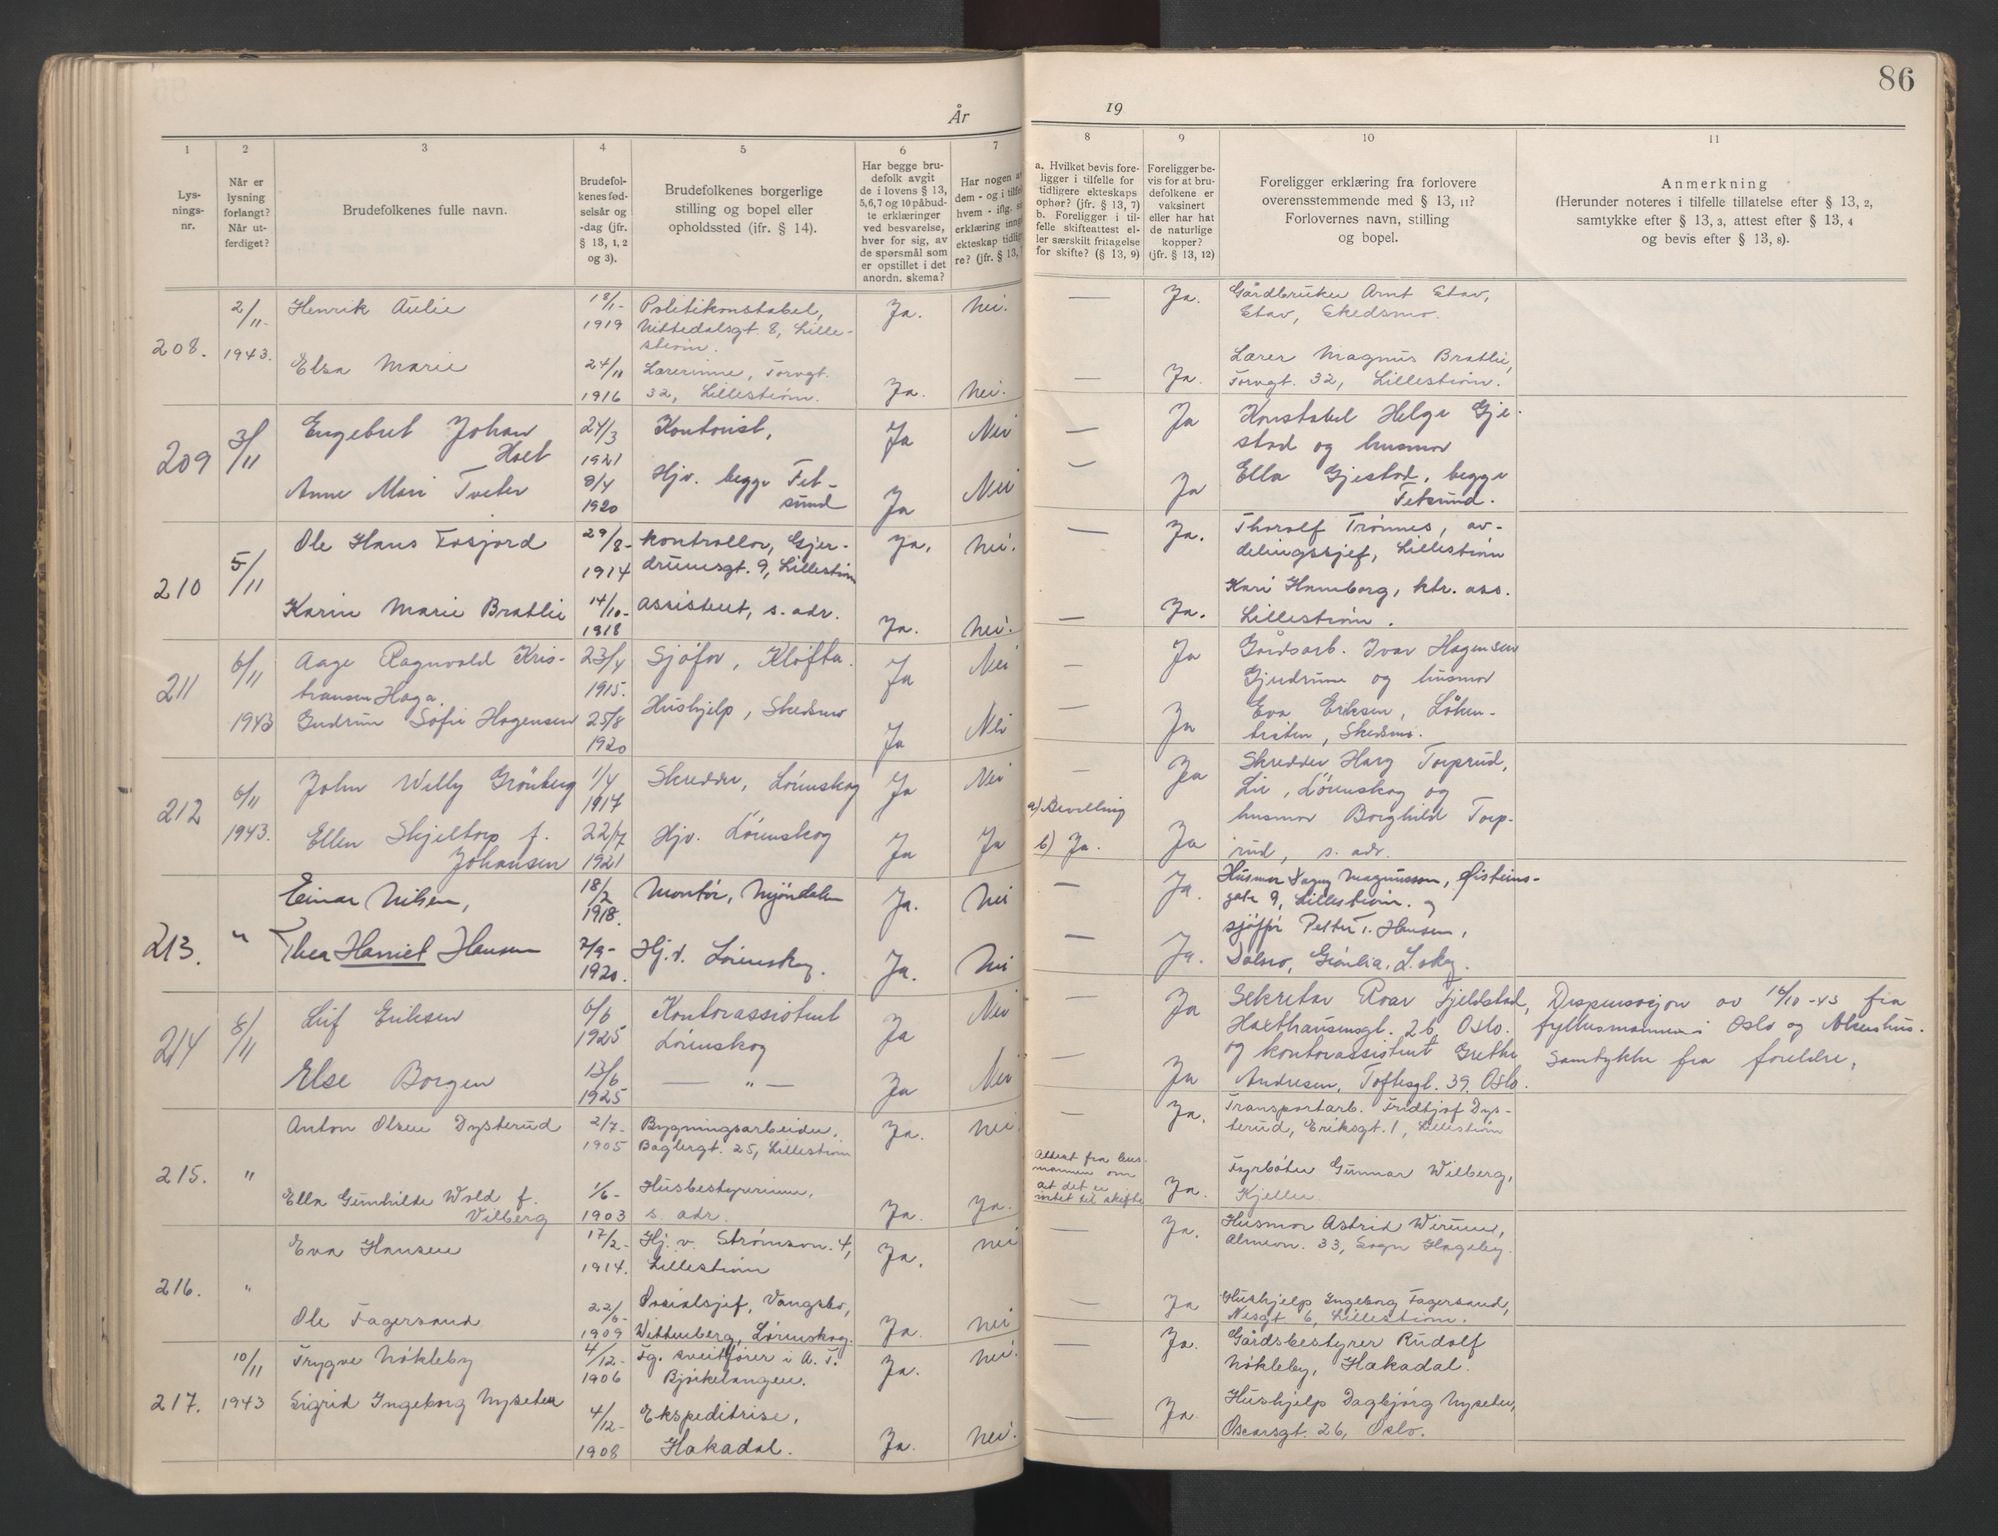 86
År
19
1
2
3
4
5
6
7
8
9
10
11
Lys-
nings-
nr.
Når er
lysning
forlangt?
Når ut-
ferdiget?
Brudefolkenes fulle navn.
Brudefol-
kenes fød-
selsår og
-dag (jfr.
§ 13, 1, 2
og 3).
Brudefolkenes borgerlige
stilling og bopel eller
opholdssted (jfr. § 14).
Har begge bru-
defolk avgit
de i lovens § 13,
5, 6, 7 og 10 påbud-
te erklæringer
ved besvarelse,
hver for sig, av
de spørsmål som
er opstillet i det
anordn. skema?
Har nogen a
dem - og i tilfel
hvem - iflg. si
erklæring inng
ekteskap tidlig
re? (jfr. § 13,
a. Hvilket bevis fore-
ligger i tilfelle for
tidligere ekteskaps
ophør? (jfr. § 13, 7)
b. Foreligger i til-
felle skifteattest el-
ler særskilt fritagelse
for skifte? (§ 13, 9)
Foreligger be-
vis for at bru-
defolkene er
vaksinert
eller har hat
de naturlige
kopper?
(jfr. § 13, 12)
Foreligger erklæring fra forlovere
overensstemmende med § 13, 11?
Forlovernes navn, stilling
og bopel.
Anmerkning
(Herunder noteres i tilfelle tillatelse efter § 13, 2,
samtykke efter § 13, 3, attest efter § 13, 4
og bevis efter § 13, 8).
208. 2/11- 1943.
Henrik Aulie
1919
Politikonstabel,
Nittedalsgt. 8, Lille-
strøm.
Ja. Nei. — Ja.
Gårdbruker Arnt Etav,
Etav, Skedsmo.
Elsa Marie
24/11
1916
Lærerinne, Torvgt.
32, Lillestrøm.
Ja. Nei. — Ja.
Lærer Magnus Bratlie,
Torvgt. 32, Lillestrøm.
209 3/11
Engebret Johan
Holt
24/3
1921
Kontorist,
Ja Nei — Ja
Konstabel Helge Gje-
stad og husmor
Anne Mari Tveter
9/4
1920
Hjv. begge Fet-
sund
Ja Nei — Ja
Ella Gjestad, begge
Fetsund.
210 5/11
Ole Hans Fosjord
29/8-
1914
Kontrollør, Gjer-
drumsgt. 9, Lillestrøm
Ja, Nei. — Ja.
Thoralf Trønnes, av-
delingssjef, Lillestrøm
Karin Marie Bratlie
14/10-
1918
Assistent, s. adr.
Ja. Nei. — Ja.
Kari Hamborg, ktr. ass.
Lillestrøm.
211 6/11 1943
Aage Ragnvald Kris-
tiansen Haga.
23/4
1915.
Sjåfør, Kløfta.
Ja Nei — Ja
Gårdsarb. Ivar Hagensen
Gjerdrum og husmor
Gudrun Sofie Hagensen
25/8
1920
Hushjelp, Skedsmo
Ja Nei Ja
Eva Eriksen, Løken-
Skedsmo.
212 6/11 1943.
John Willy Grönberg
1/4
1917
Skredder, Lörenskog
Ja Nei — Ja
Skredder Harg Torprud,
Lie, Lörenskog og
Ellen Skjeltorp f.
Johansen
22/7
1921
Hjv. Lörenskog
Ja Ja
a) Bevilling
b) Ja.
Ja
husmor Borghild Torp-
rud, s. adr.
213. "
Einar Nilsen,
18/2
1918.
Montør, Mjöndalen
Ja. Nei — Ja.
Husmor Magnusson, Øisteins-
gate 9, Lillestrøm. og
Thea Harriet Hansen
7/9-
1920.
Hj.v. Lörenskog.
Ja. Nei — Ja.
sjåfør Petter Hansen,
Dalsro, Grönlia, L.skog.
214 8/11
Leif Eriksen
6/6
1925
Kontorassistent
Lörenskog
Ja Nei — Ja
Sekretær Roar Fjeldstad,
Haxthausensgt. 26, Oslo.
Dispensasjon av 16/10-43 fra
fylkesmannen i Oslo og Akershus.
Else Borgen
13/6
1925
— " —
Ja Nei — Ja
og kontorassistent Grethe
Andresen, Toftesgt. 39. Oslo.
Samtykke fra foreldre,
215. "
Anton Olsen Dysterud
2/7-
1905
Bygningsarbeider,
Baglergt. 25, Lillestrøm
Ja. Nei — Ja.
Transportarb. Fridtjof Dys-
terud, Eriksgt. 1, Lillestrøm
Ella Gunhilde Wold f.
Vilberg
1/6-
1903
Husbestyrerinne,
s. adr.
Ja. Ja.
Attest fra lens-
mannen om
at det er
intet til skifte
Ja.
Fyrbøter Gunnar Wilberg,
Kjeller.
216. "
Eva Hansen
17/2-
1914.
Hj. v. Strømsvn. 4,
Lillestrøm
Ja. Nei — Ja.
Husmor Astrid Wirum,
33, Sogn Hageby.
Ole Fagersand
22/6-
1909
Sosialsjef, Vangsbo,
Wittenberg, Lørenskog.
Ja. Nei — Ja
Hushjelp Ingeborg Fagersand,
Nesgt 6, Lillestrøm.
217. 10/11 1943
Trygve Nökleby
4/12-
1906
Fg. sveitfører i A. T.
Bjørkelangen.
Ja. Nei. Ja.
Gårdsbestyrer Rudolf
Nökleby, Hakadal.
Sigrid Ingeborg Nyseter
4/12-
1908
Ekspeditrise,
Hakadal.
Ja. Nei. — Ja.
Hushjelp Dagbjörg Nyseter,
Oscarsgt. 26, Oslo.